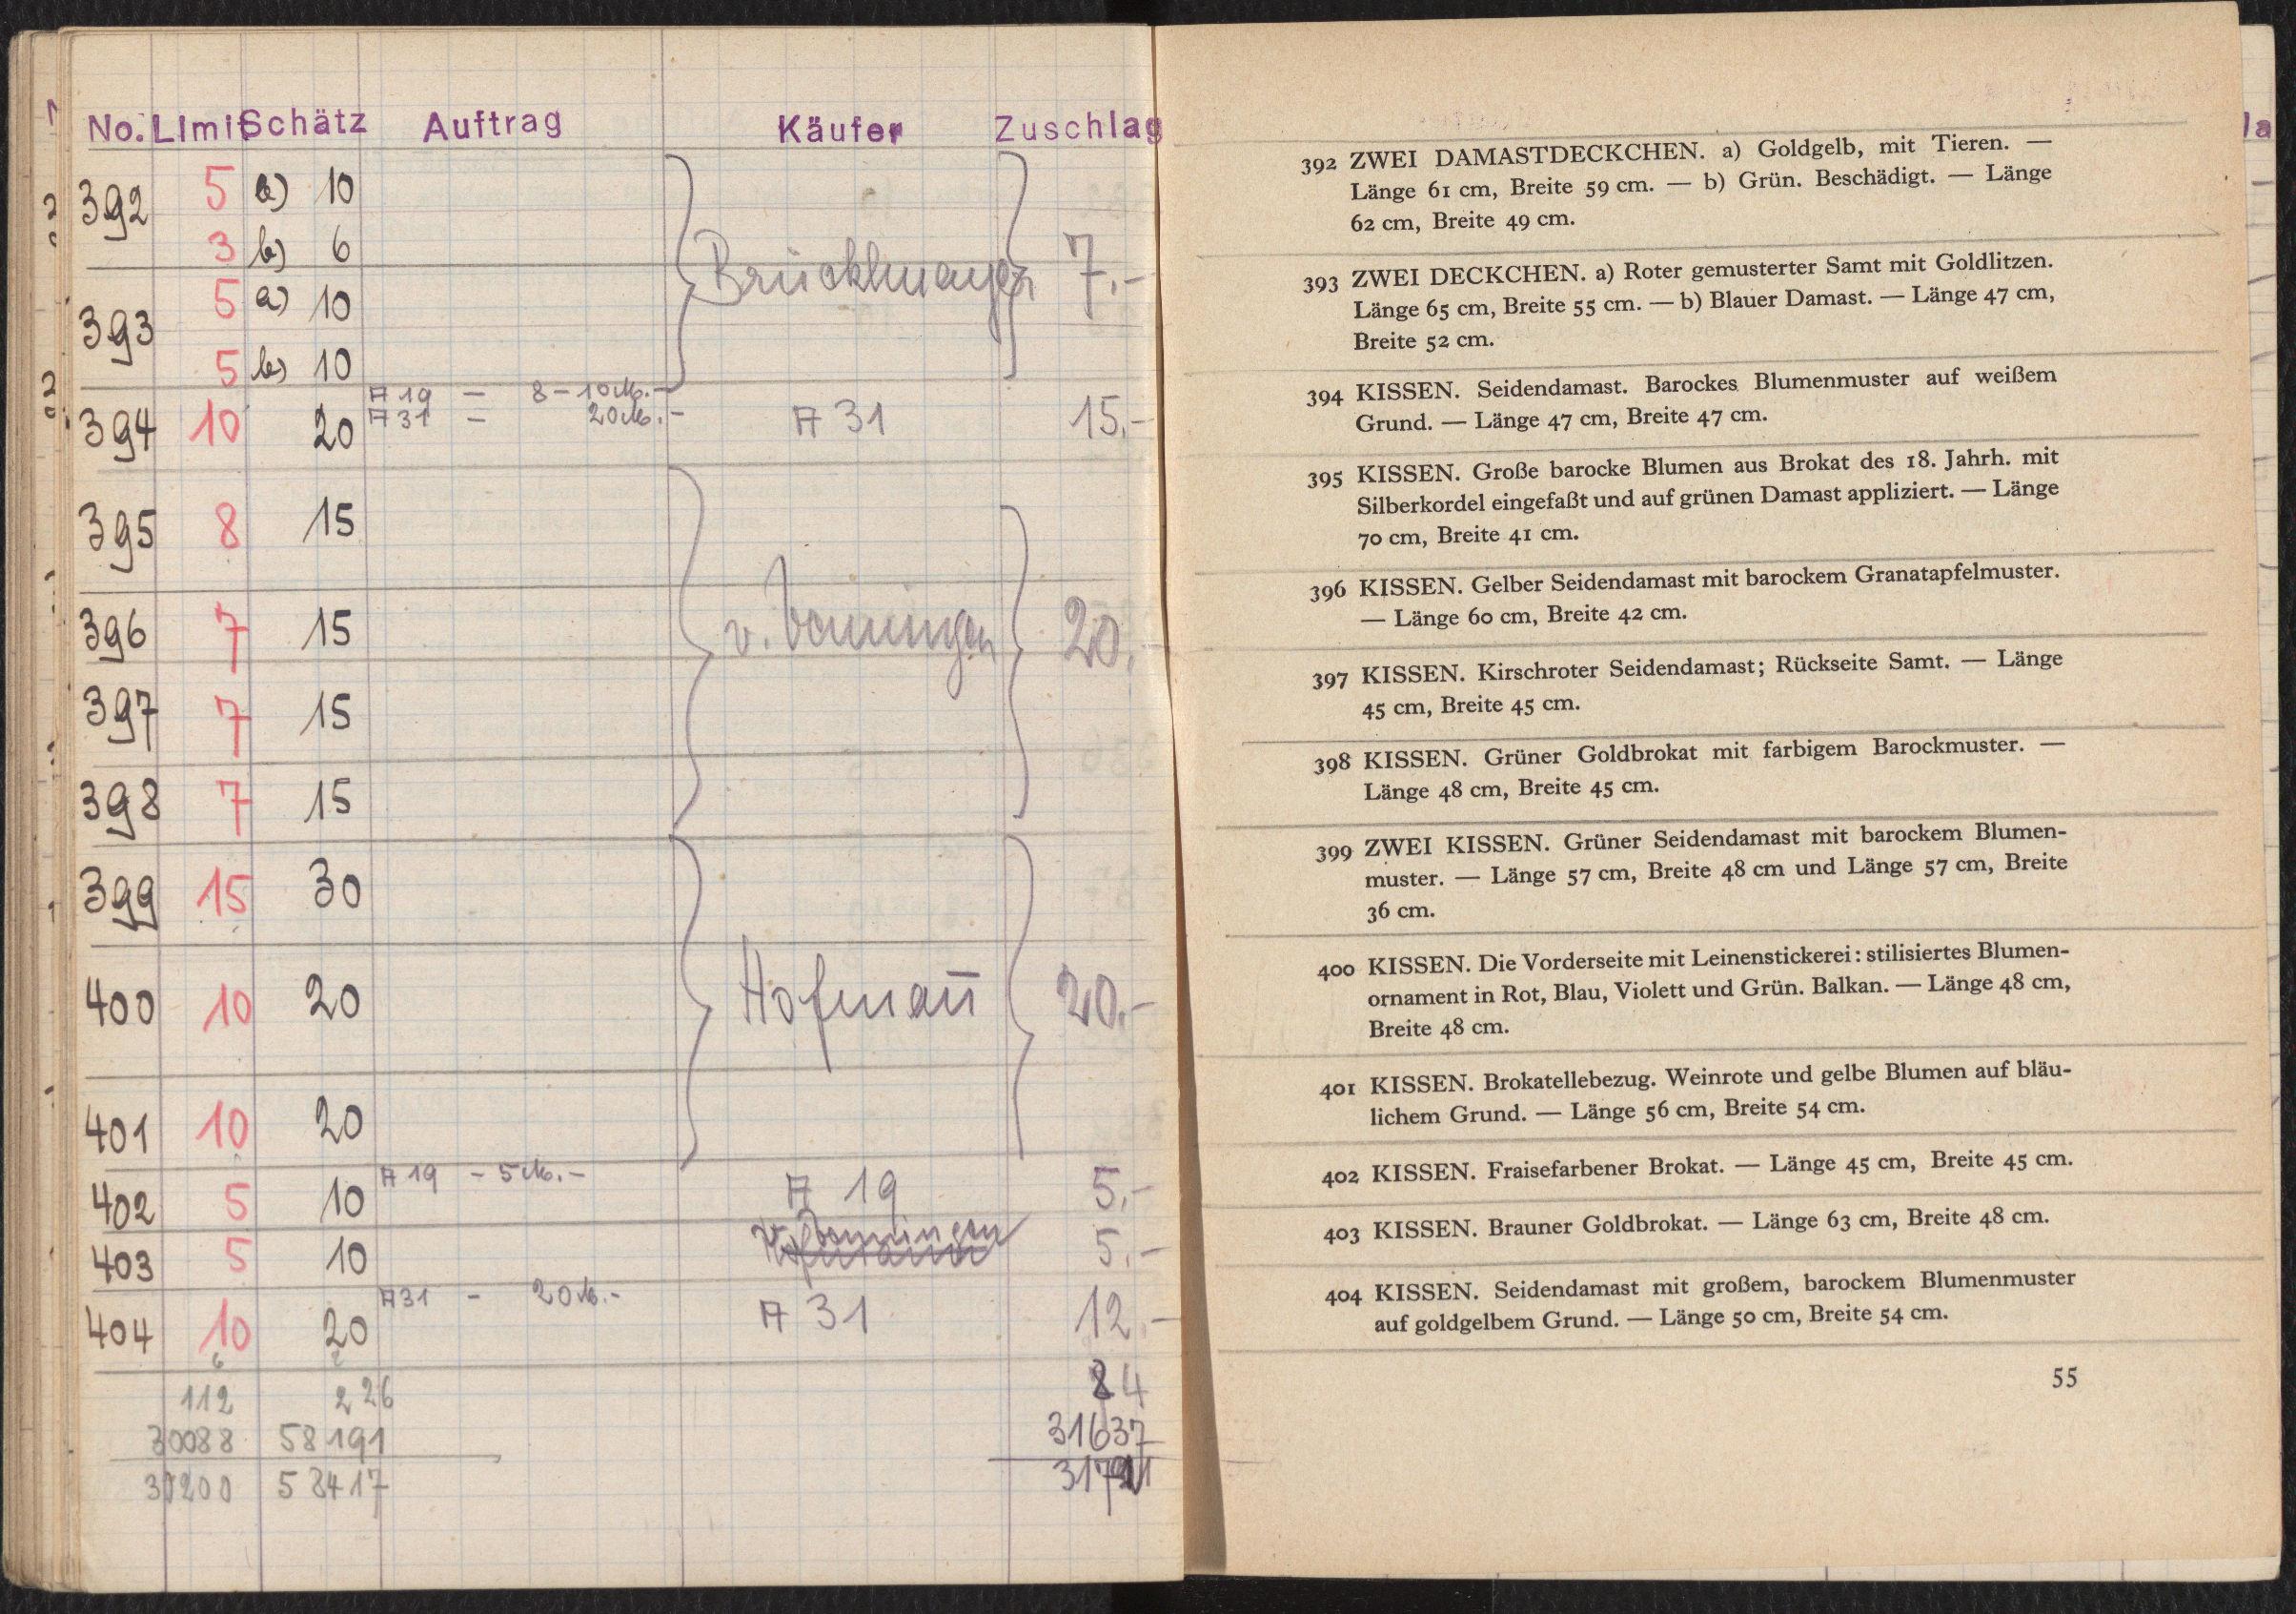 No. Limit Schätz Auftrag Käufer Zuschlag
392 5 a) 10
3 b) 6
Brücklmayer 7.-
393 5 a) 10
5 b) 10
A 19 — 8-10 M.-
A 31 — 20 M.-
394 10 20 A 31 15.-
395 8 15
396 7 15 20.
397 7 15
398 7 15
399 15 30
400 10 20 Hofmañ 20.-
401 10 20
A 19 - 5 M.-
402 5 10 A 19 5.-
403 5 10 5.-
A 31 - 20 M.-
404 10 20 A 31 12.-
112 226 84
30088 58191 31637
30200 58417
392 ZWEI DAMASTDECKCHEN. a) Goldgelb, mit Tieren. —
Länge 61 cm, Breite 59 cm. — b) Grün. Beschädigt. — Länge
62 cm, Breite 49 cm.
393 ZWEI DECKCHEN. a) Roter gemusterter Samt mit Goldlitzen.
Länge 65 cm, Breite 55 cm. — b) Blauer Damast. — Länge 47 cm,
Breite 52 cm.
394 KISSEN. Seidendamast. Barockes Blumenmuster auf weißem
Grund. — Länge 47 cm, Breite 47 cm.
395 KISSEN. Große barocke Blumen aus Brokat des 18. Jahrh. mit
Silberkordel eingefaßt und auf grünen Damast appliziert. — Länge
70 cm, Breite 41 cm.
396 KISSEN. Gelber Seidendamast mit barockem Granatapfelmuster.
— Länge 60 cm, Breite 42 cm.
397 KISSEN. Kirschroter Seidendamast; Rückseite Samt. — Länge
45 cm, Breite 45 cm.
398 KISSEN. Grüner Goldbrokat mit farbigem Barockmuster. —
Länge 48 cm, Breite 45 cm.
399 ZWEI KISSEN. Grüner Seidendamast mit barockem Blumen-
muster. — Länge 57 cm, Breite 48 cm und Länge 57 cm, Breite
36 cm.
400 KISSEN. Die Vorderseite mit Leinenstickerei: stilisiertes Blumen-
ornament in Rot, Blau, Violett und Grün. Balkan. — Länge 48 cm,
Breite 48 cm.
401 KISSEN. Brokatellebezug. Weinrote und gelbe Blumen auf bläu-
lichem Grund. — Länge 56 cm, Breite 54 cm.
402 KISSEN. Fraisefarbener Brokat. — Länge 45 cm, Breite 45 cm.
403 KISSEN. Brauner Goldbrokat. — Länge 63 cm, Breite 48 cm.
404 KISSEN. Seidendamast mit großem, barockem Blumenmuster
auf goldgelbem Grund. — Länge 50 cm, Breite 54 cm.
55